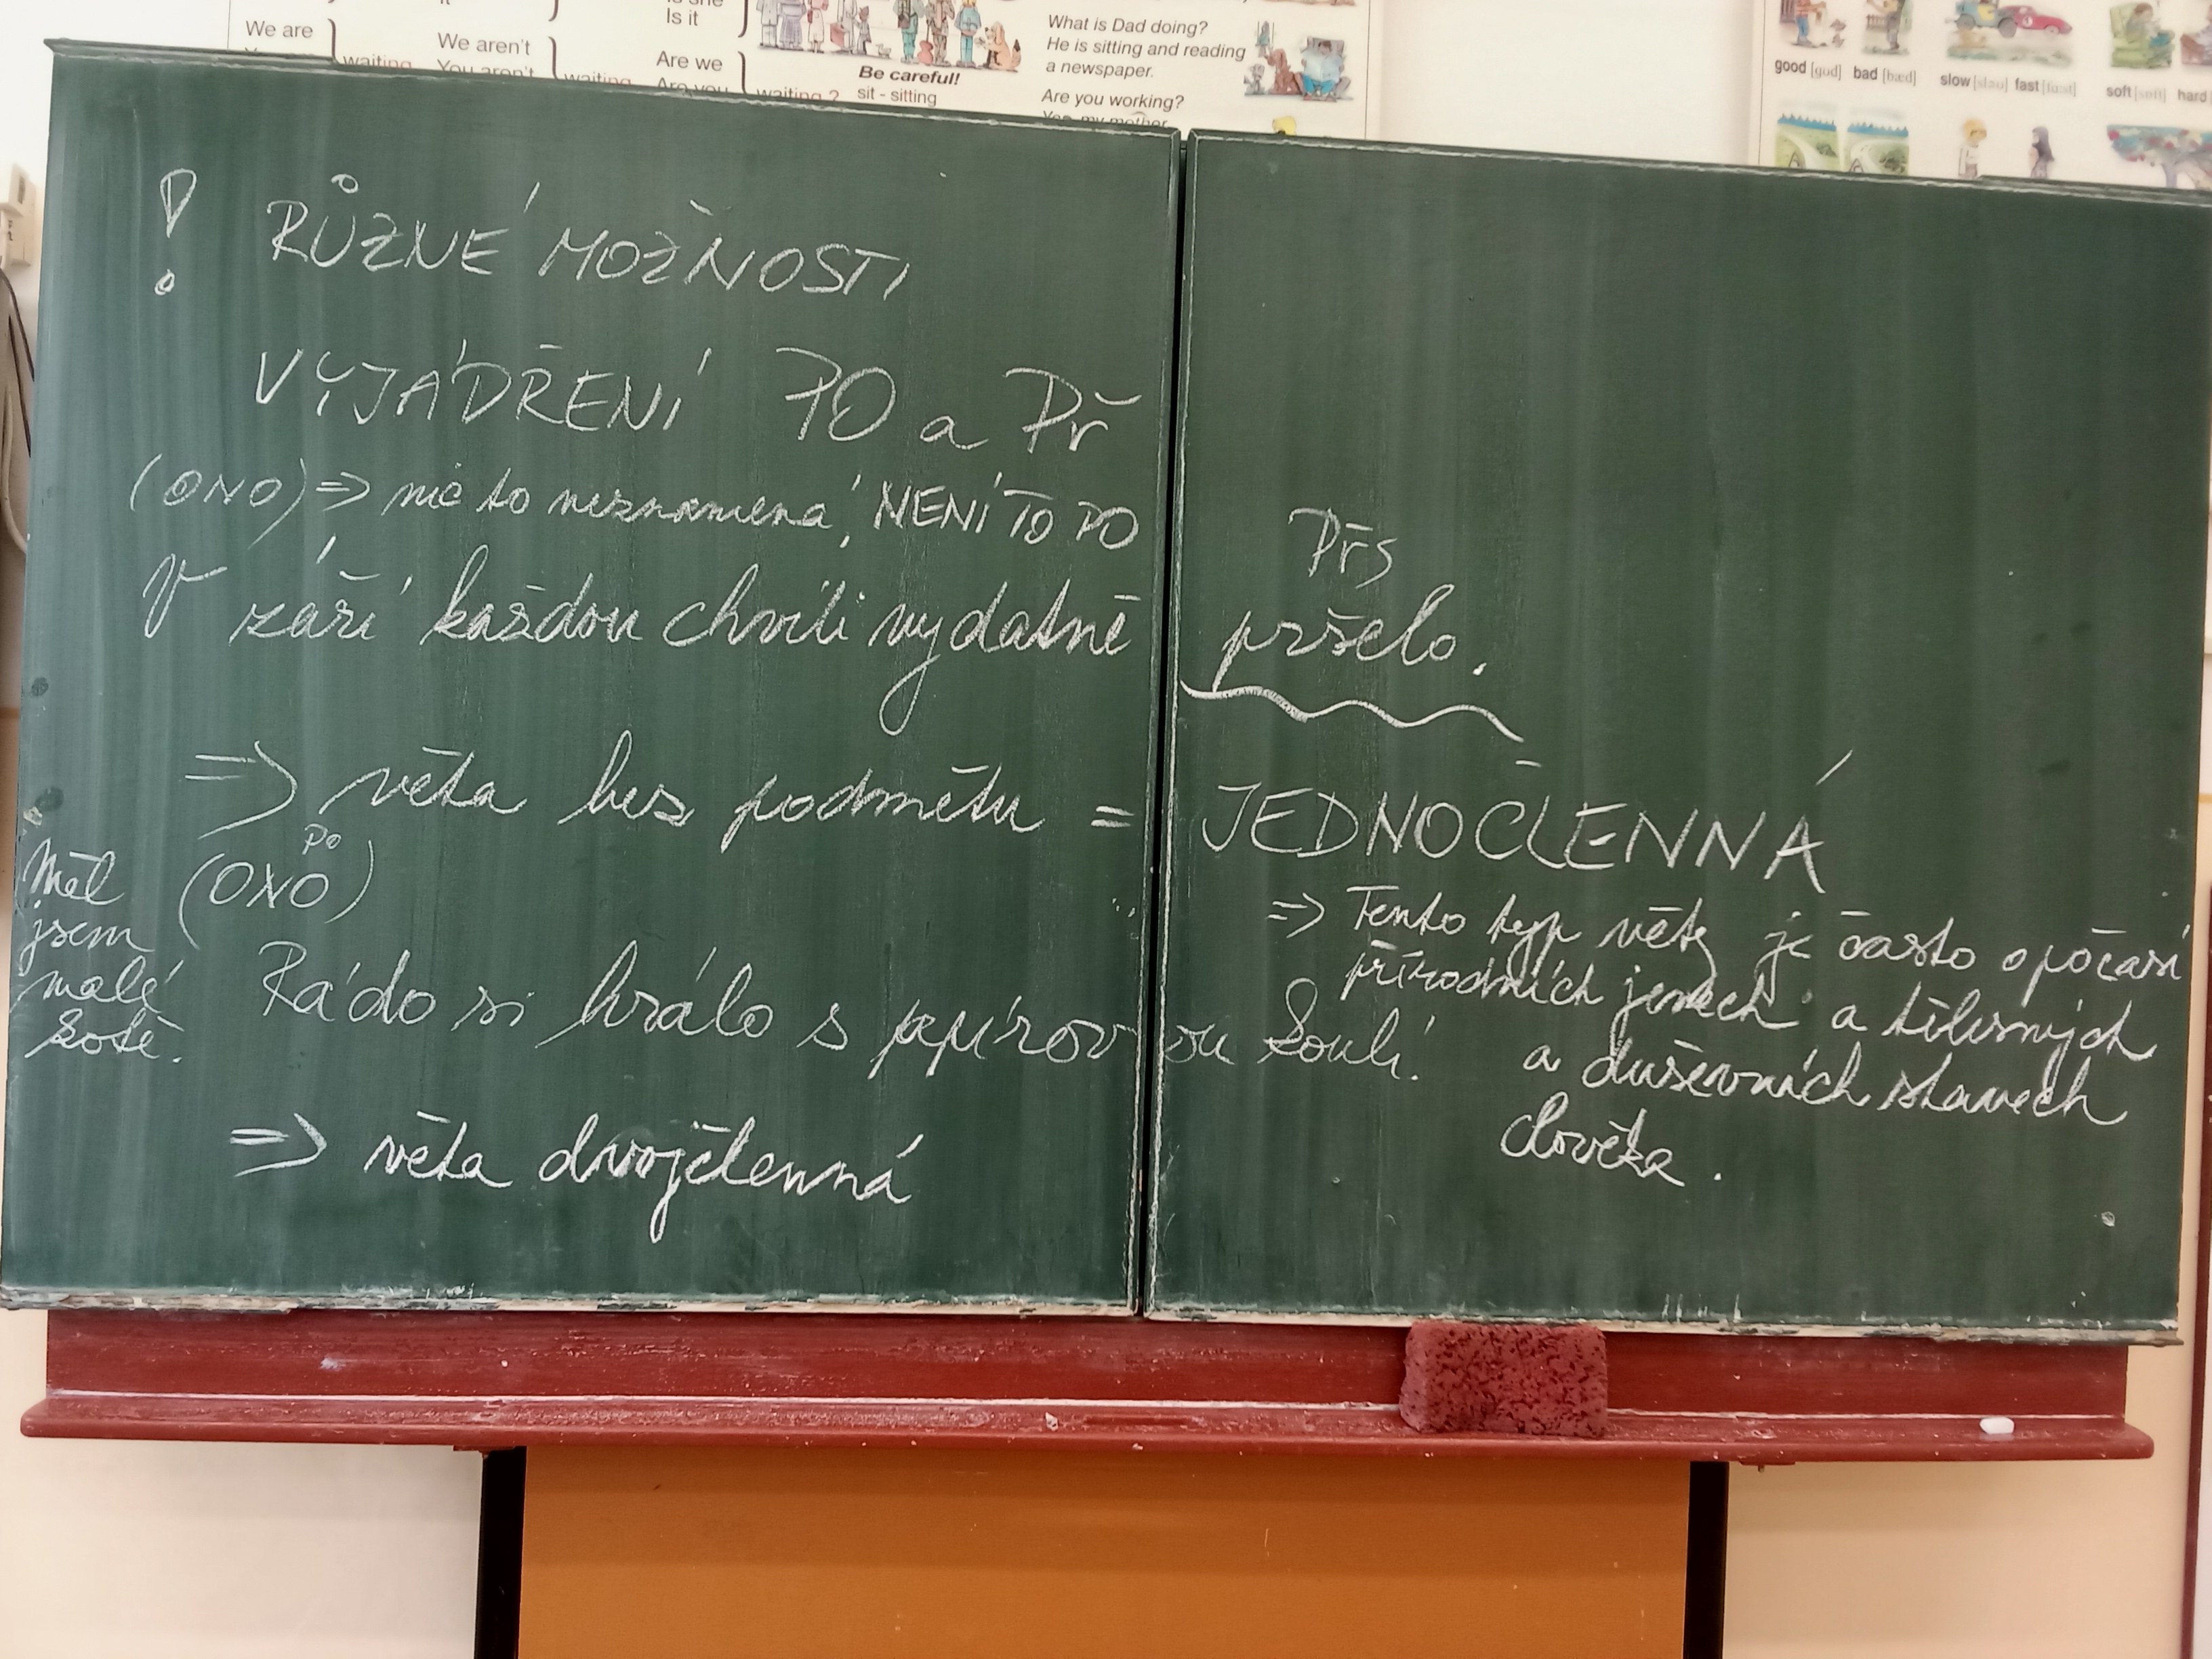 It
Is she
Is it
We are
We aren't
Are we
waiting
You aren't
waiting
Are you
waiting ?
Be careful!
sit - sitting
What is Dad doing?
He is sitting and reading
a newspaper.
Are you working?
Yes, my mother
good [gud] bad [bæd] slow [slau] fast [fa:st] soft [soft] hard
! RŮZNÉ MOŽNOSTI
VYJÁDŘENÍ PO a Př
(ONO) => nic to neznamená, NENÍ TO PO
Přs
V září každou chvíli vydatně pršelo.
=> věta bez podmětu = JEDNOČLENNÁ
=> Tento typ věty je často o počasí
přírodních jevech a tělesných
a duševních stavech
člověka.
Měl
jsem
malé
kotě.
Po
(ONO)
Rádo si hrálo s papírovou koulí.
=> věta dvojčlenná